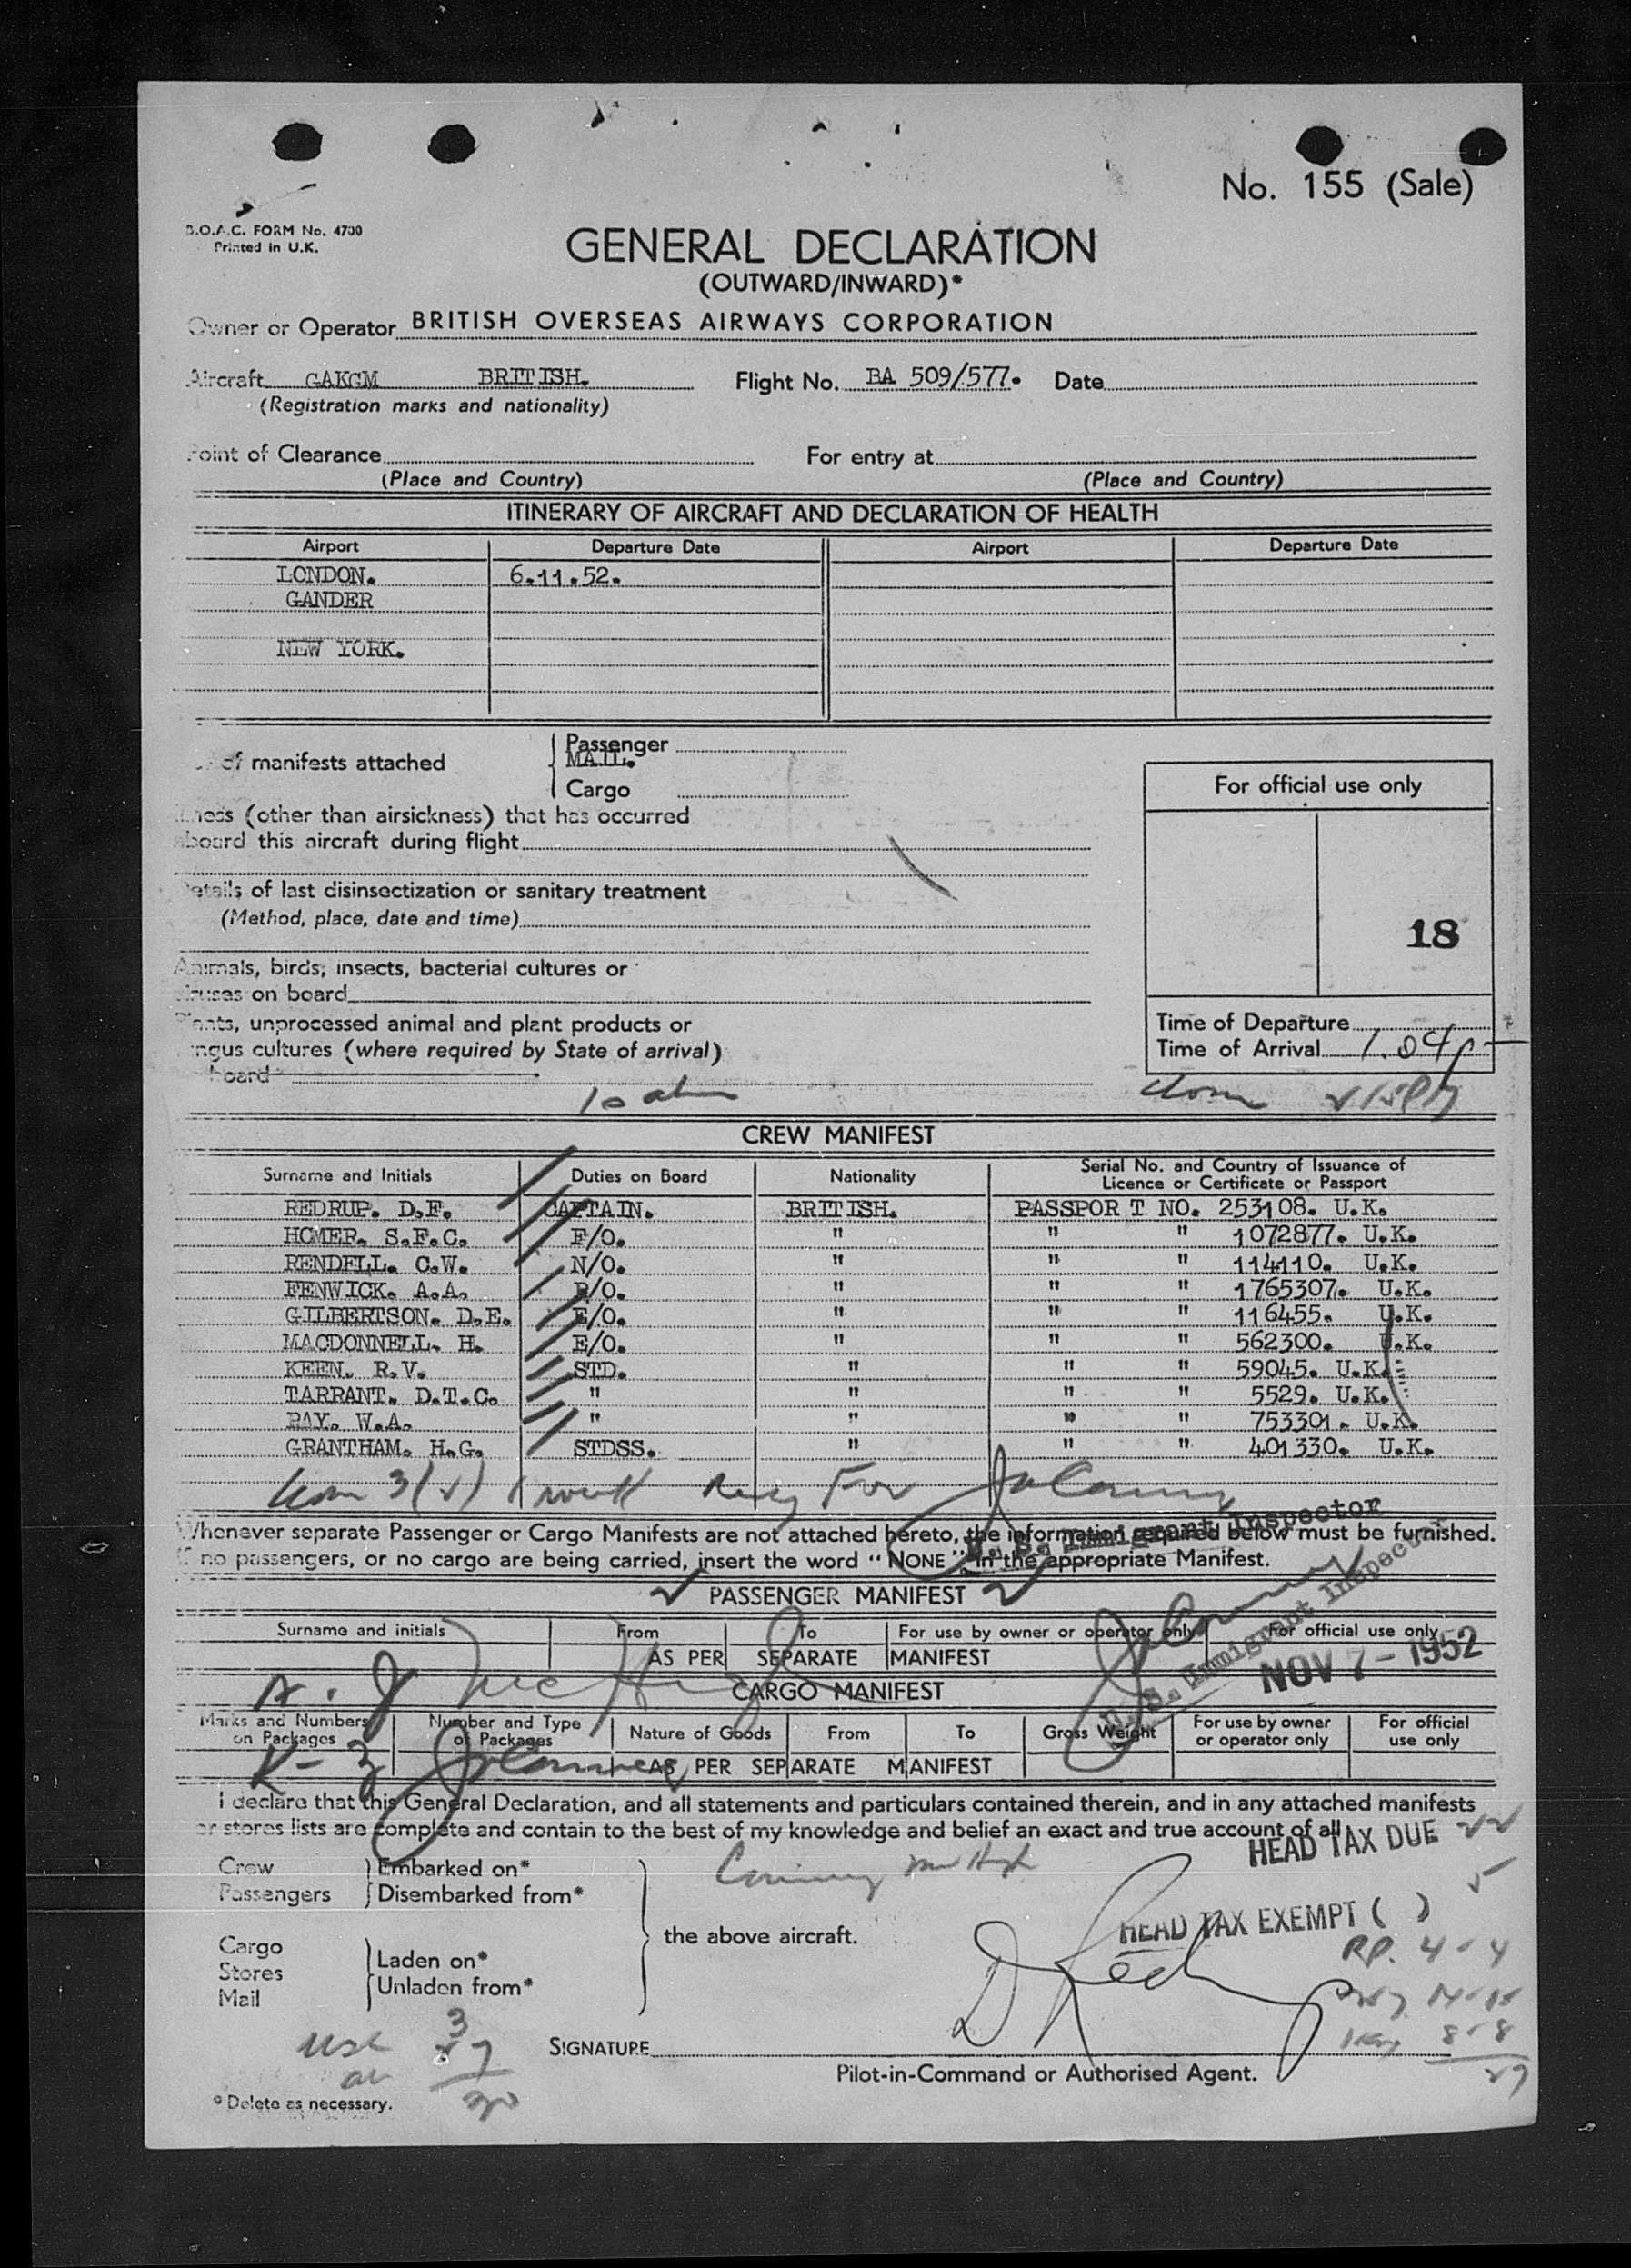 No. 155 (Sale)
B.O.A.C. FORM No. 4700
Printed in U.K.
GENERAL DECLARATION
(OUTWARD/INWARD)*
Owner or Operator BRITISH OVERSEAS AIRWAYS CORPORATION
Aircraft GAKGM BRITISH. Flight No. BA 509/577. Date
(Registration marks and nationality)
Point of Clearance For entry at
(Place and Country) (Place and Country)
ITINERARY OF AIRCRAFT AND DECLARATION OF HEALTH
Airport Departure Date Airport Departure Date
LONDON. 6.11.52.
GANDER
NEW YORK.
of manifests attached
Passenger
MAIL.
Cargo
For official use only
Illness (other than airsickness) that has occurred
aboard this aircraft during flight
Details of last disinsectization or sanitary treatment
(Method, place, date and time)
18
Animals, birds, insects, bacterial cultures or
viruses on board
Plants, unprocessed animal and plant products or
fungus cultures (where required by State of arrival)
board
Time of Departure
Time of Arrival 1.04p
CREW MANIFEST
Surname and Initials Duties on Board Nationality Serial No. and Country of Issuance of Licence or Certificate or Passport
REDRUP. D.F. CAPTAIN. BRITISH. PASSPORT NO. 253108. U.K.
HOMER. S.F.C. F/O. " " " 1072877. U.K.
RENDELL. C.W. N/O. " " " 114110. U.K.
FENWICK. A.A. R/O. " " " 1765307. U.K.
GILBERTSON. D.E. E/O. " " " 116455. U.K.
MACDONNELL. H. E/O. " " " 562300. U.K.
KEEN. R.V. STD. " " " 59045. U.K.
TARRANT. D.T.C. " " " " 5529. U.K.
RAY. W.A. " " " " 753301. U.K.
GRANTHAM. H.G. STDSS. " " " 401330. U.K.
Whenever separate Passenger or Cargo Manifests are not attached hereto, the information required below must be furnished.
U. S. Immigrant Inspector
If no passengers, or no cargo are being carried, insert the word "NONE" in the appropriate Manifest.
PASSENGER MANIFEST
Surname and initials From To For use by owner or operator only For official use only
AS PER SEPARATE MANIFEST
U. S. Immigrant Inspector
NOV 7 - 1952
CARGO MANIFEST
Marks and Numbers on Packages Number and Type of Packages Nature of Goods From To Gross Weight For use by owner or operator only For official use only
AS PER SEPARATE MANIFEST
I declare that this General Declaration, and all statements and particulars contained therein, and in any attached manifests
or stores lists are complete and contain to the best of my knowledge and belief an exact and true account of all
HEAD TAX DUE
Crew Embarked on*
Passengers Disembarked from*
HEAD TAX EXEMPT ( )
the above aircraft.
Cargo
Stores
Mail
Laden on*
Unladen from*
SIGNATURE
Pilot-in-Command or Authorised Agent.
* Delete as necessary.